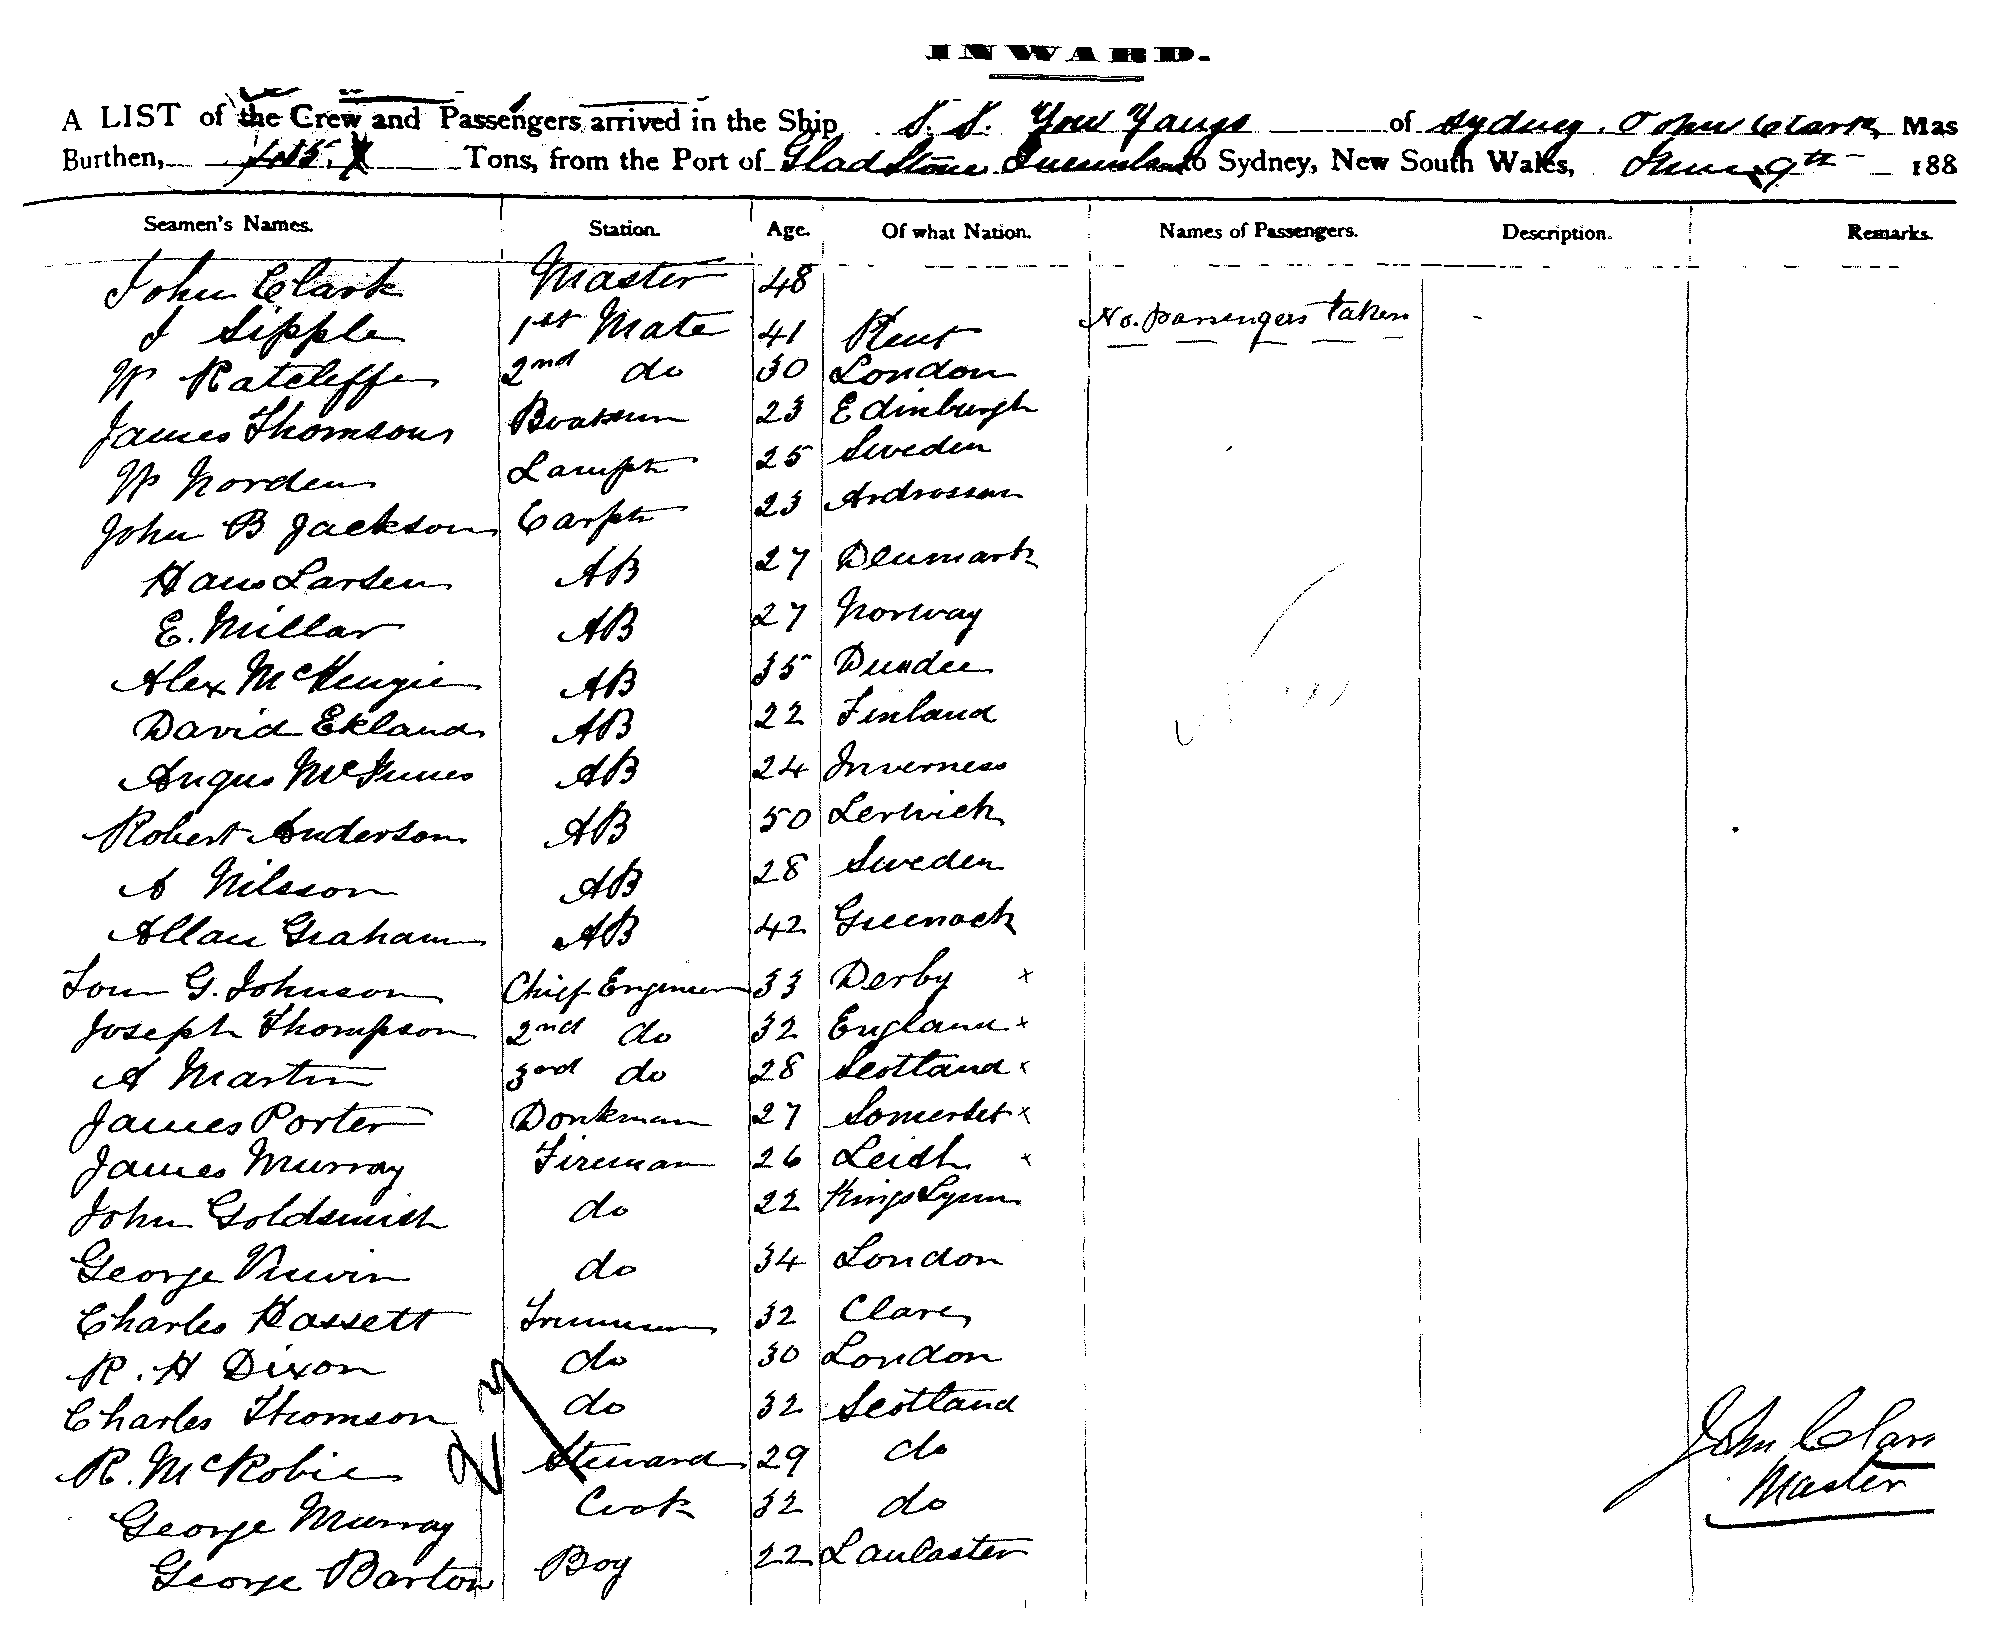 INWARD.
A LIST of the Crew and Passengers arrived in the Ship S. S. You Yangs of Sydney. John Clark, Mas
Burthen, Tons, from the Port of Gladstone Queensland to Sydney, New South Wales, June 9th 188
Seamen's Names. Station. Age. Of what Nation. Names of Passengers. Description. Remarks.
John Clark Master 48
J Sipple 1st Mate 41 Kent No. passengers taken
W Ratcliffe 2nd do 30 London
James Thomson Boatsun 23 Edinburgh
W Norden Lamptr 25 Sweden
John B Jackson Carptr 23 Ardrossan
Hans Larsen AB 27 Denmark
E. Millar AB 27 Norway
Alex McKenzie AB 35 Dundee
David Ekland AB 22 Finland
Angus McInnes AB 24 Inverness
Robert Anderson AB 50 Lerwick
A Nilsson AB 28 Sweden
Allan Graham AB 42 Greenock
Tom G. Johnson Chief Engineer 33 Derby x
Joseph Thompson 2nd do 32 England x
A Martin 3rd do 28 Scotland x
James Porter Donkman 27 Somerset x
James Murray Fireman 26 Leith x
John Goldsmith do 22 Kings Lynn
George do 34 London
Charles Hassett Trimmer 32 Clare
R. H Dixon do 30 London
Charles Thomson do 32 Scotland
R. McRobie Steward 29 do
George Murray Cook 32 do
George Barton Boy 22 Lancaster
27
John Clark
Master